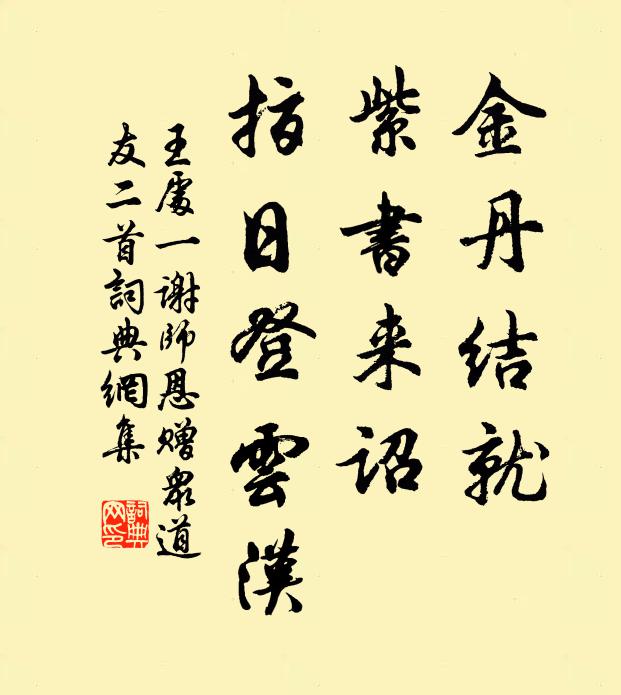 金丹结就
紫書来詔
指日登雲漢
王處一謝師恩贈衆道
友二首詞典網集
詞典
网印